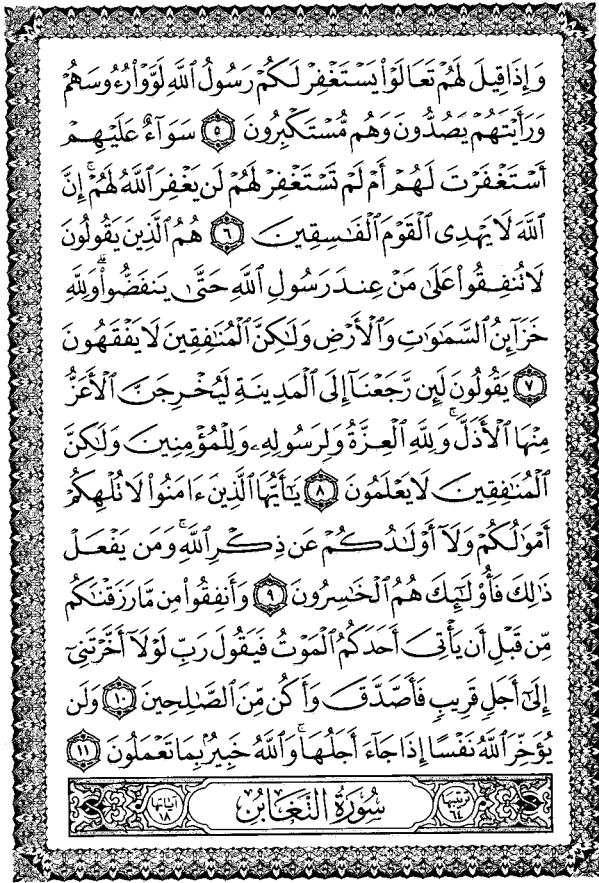 وَإِذَا قِيلَ لَهُمْ تَعَالَوْا۟ يَسْتَغْفِرْ لَكُمْ رَسُولُ ٱللَّهِ لَوَّوْا۟ رُءُوسَهُمْ
وَرَأَيْتَهُمْ يَصُدُّونَ وَهُم مُّسْتَكْبِرُونَ ٥ سَوَآءٌ عَلَيْهِمْ
أَسْتَغْفَرْتَ لَهُمْ أَمْ لَمْ تَسْتَغْفِرْ لَهُمْ لَن يَغْفِرَ ٱللَّهُ لَهُمْ ۚ إِنَّ
ٱللَّهَ لَا يَهْدِى ٱلْقَوْمَ ٱلْفَـٰسِقِينَ ٦ هُمُ ٱلَّذِينَ يَقُولُونَ
لَا تُنفِقُوا۟ عَلَىٰ مَنْ عِندَ رَسُولِ ٱللَّهِ حَتَّىٰ يَنفَضُّوا۟ ۗ وَلِلَّهِ
خَزَآئِنُ ٱلسَّمَـٰوَٰتِ وَٱلْأَرْضِ وَلَـٰكِنَّ ٱلْمُنَـٰفِقِينَ لَا يَفْقَهُونَ
٧ يَقُولُونَ لَئِن رَّجَعْنَآ إِلَى ٱلْمَدِينَةِ لَيُخْرِجَنَّ ٱلْأَعَزُّ
مِنْهَا ٱلْأَذَلَّ ۚ وَلِلَّهِ ٱلْعِزَّةُ وَلِرَسُولِهِۦ وَلِلْمُؤْمِنِينَ وَلَـٰكِنَّ
ٱلْمُنَـٰفِقِينَ لَا يَعْلَمُونَ ٨ يَـٰٓأَيُّهَا ٱلَّذِينَ ءَامَنُوا۟ لَا تُلْهِكُمْ
أَمْوَٰلُكُمْ وَلَآ أَوْلَـٰدُكُمْ عَن ذِكْرِ ٱللَّهِ ۚ وَمَن يَفْعَلْ
ذَٰلِكَ فَأُو۟لَـٰٓئِكَ هُمُ ٱلْخَـٰسِرُونَ ٩ وَأَنفِقُوا۟ مِن مَّا رَزَقْنَـٰكُم
مِّن قَبْلِ أَن يَأْتِىَ أَحَدَكُمُ ٱلْمَوْتُ فَيَقُولَ رَبِّ لَوْلَآ أَخَّرْتَنِىٓ
إِلَىٰٓ أَجَلٍ قَرِيبٍ فَأَصَّدَّقَ وَأَكُن مِّنَ ٱلصَّـٰلِحِينَ ١٠ وَلَن
يُؤَخِّرَ ٱللَّهُ نَفْسًا إِذَا جَآءَ أَجَلُهَا ۚ وَٱللَّهُ خَبِيرٌۢ بِمَا تَعْمَلُونَ ١١
ترتيبها ٦٤ سُورَةُ التَّغَابُنِ آياتها ١٨